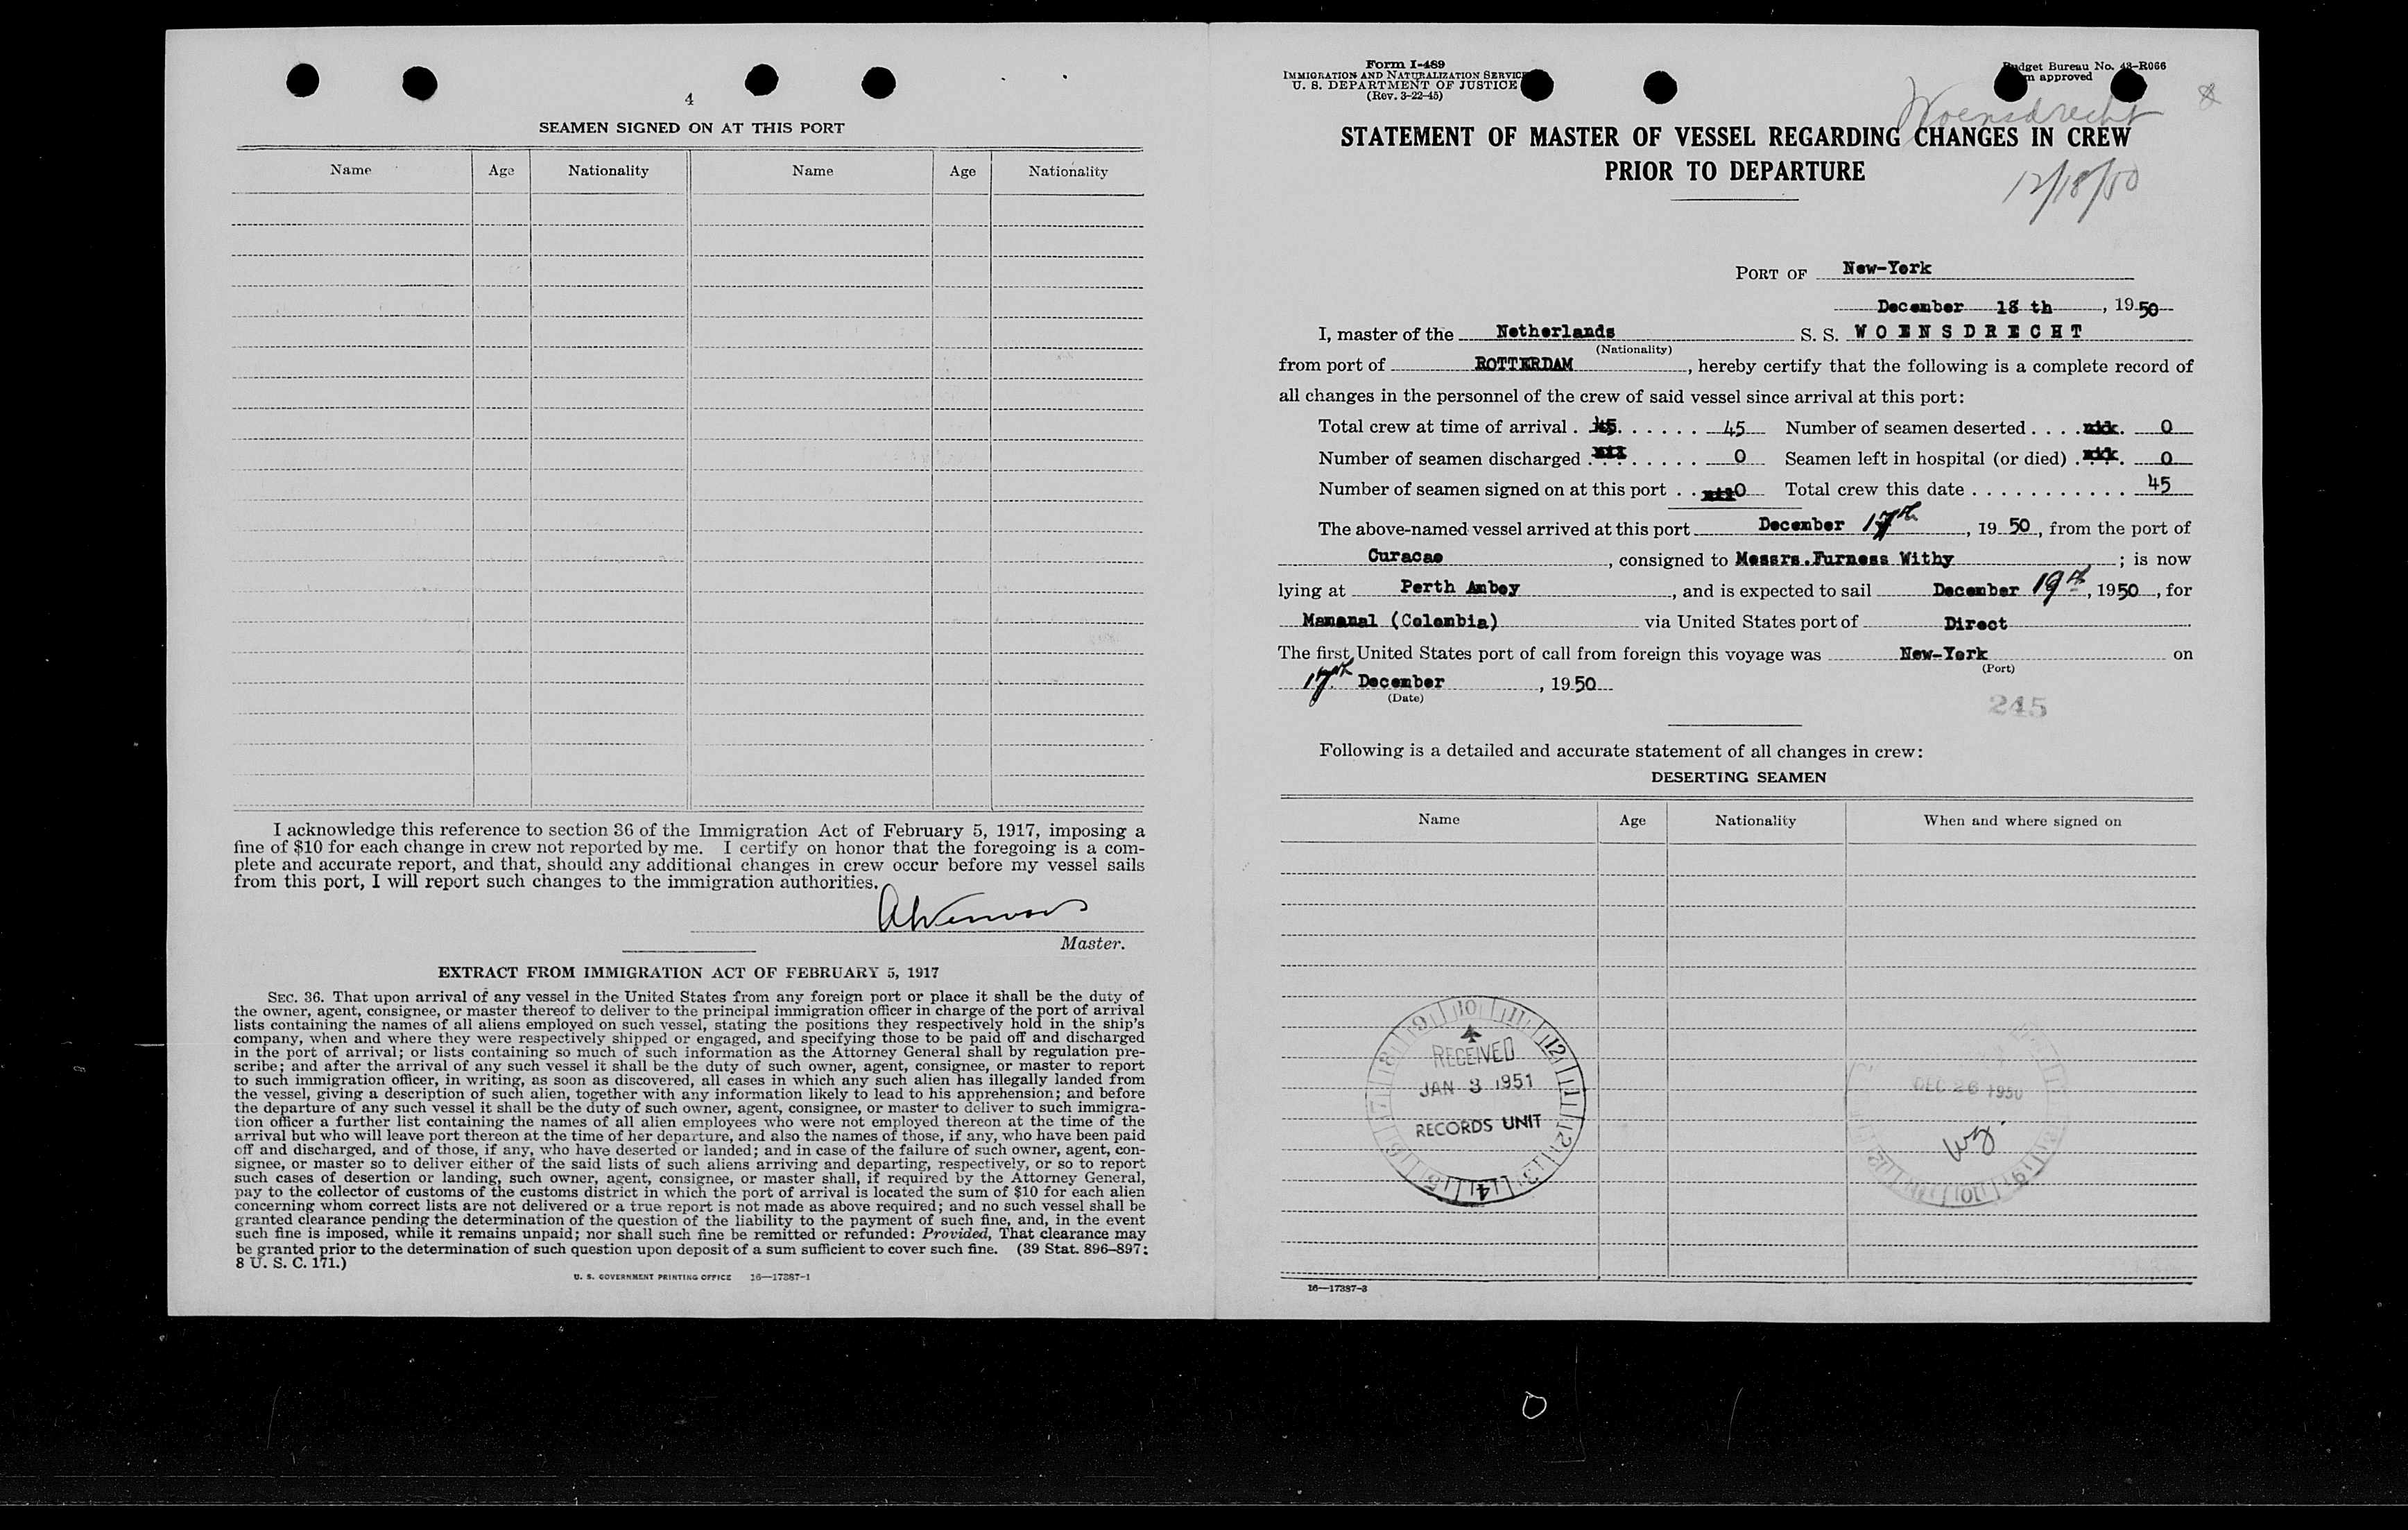 4
SEAMEN SIGNED ON AT THIS PORT
Name Age Nationality Name Age Nationality
I acknowledge this reference to section 36 of the Immigration Act of February 5, 1917, imposing a
fine of $10 for each change in crew not reported by me. I certify on honor that the foregoing is a com-
plete and accurate report, and that, should any additional changes in crew occur before my vessel sails
from this port, I will report such changes to the immigration authorities.
Master.
EXTRACT FROM IMMIGRATION ACT OF FEBRUARY 5, 1917
SEC. 36. That upon arrival of any vessel in the United States from any foreign port or place it shall be the duty of
the owner, agent, consignee, or master thereof to deliver to the principal immigration officer in charge of the port of arrival
lists containing the names of all aliens employed on such vessel, stating the positions they respectively hold in the ship's
company, when and where they were respectively shipped or engaged, and specifying those to be paid off and discharged
in the port of arrival; or lists containing so much of such information as the Attorney General shall by regulation pre-
scribe; and after the arrival of any such vessel it shall be the duty of such owner, agent, consignee, or master to report
to such immigration officer, in writing, as soon as discovered, all cases in which any such alien has illegally landed from
the vessel, giving a description of such alien, together with any information likely to lead to his apprehension; and before
the departure of any such vessel it shall be the duty of such owner, agent, consignee, or master to deliver to such immigra-
tion officer a further list containing the names of all alien employees who were not employed thereon at the time of the
arrival but who will leave port thereon at the time of her departure, and also the names of those, if any, who have been paid
off and discharged, and of those, if any, who have deserted or landed; and in case of the failure of such owner, agent, con-
signee, or master so to deliver either of the said lists of such aliens arriving and departing, respectively, or so to report
such cases of desertion or landing, such owner, agent, consignee, or master shall, if required by the Attorney General,
pay to the collector of customs of the customs district in which the port of arrival is located the sum of $10 for each alien
concerning whom correct lists are not delivered or a true report is not made as above required; and no such vessel shall be
granted clearance pending the determination of the question of the liability to the payment of such fine, and, in the event
such fine is imposed, while it remains unpaid; nor shall such fine be remitted or refunded: Provided, That clearance may
be granted prior to the determination of such question upon deposit of a sum sufficient to cover such fine. (39 Stat. 896–897;
8 U. S. C. 171.)
U. S. GOVERNMENT PRINTING OFFICE 16—17387-1
Form I-489
IMMIGRATION AND NATURALIZATION SERVICE
U. S. DEPARTMENT OF JUSTICE
(Rev. 3-22-45)
Budget Bureau No. 43-R066
approved
Woensdrecht
STATEMENT OF MASTER OF VESSEL REGARDING CHANGES IN CREW
PRIOR TO DEPARTURE
12/18/50
PORT OF New-York
December 18 th, 1950
I, master of the Netherlands S. S. WOENSDRECHT
(Nationality)
from port of ROTTERDAM, hereby certify that the following is a complete record of
all changes in the personnel of the crew of said vessel since arrival at this port:
Total crew at time of arrival . 45 . . . . . . 45 Number of seamen deserted . . . . 0
Number of seamen discharged . . . . . . . . 0 Seamen left in hospital (or died) . . . . 0
Number of seamen signed on at this port . . 0 Total crew this date . . . . . . . . . . . 45
The above-named vessel arrived at this port December 17th, 1950, from the port of
Curacao, consigned to Messrs.Furness Withy; is now
lying at Perth Amboy, and is expected to sail December 19th, 1950, for
Mamanal (Colombia) via United States port of Direct
The first United States port of call from foreign this voyage was New-York on
(Port)
17th December, 1950
(Date)
245
Following is a detailed and accurate statement of all changes in crew:
DESERTING SEAMEN
Name Age Nationality When and where signed on
RECEIVED
JAN 3 1951
RECORDS UNIT
DEC 26 1950
16—17387-3